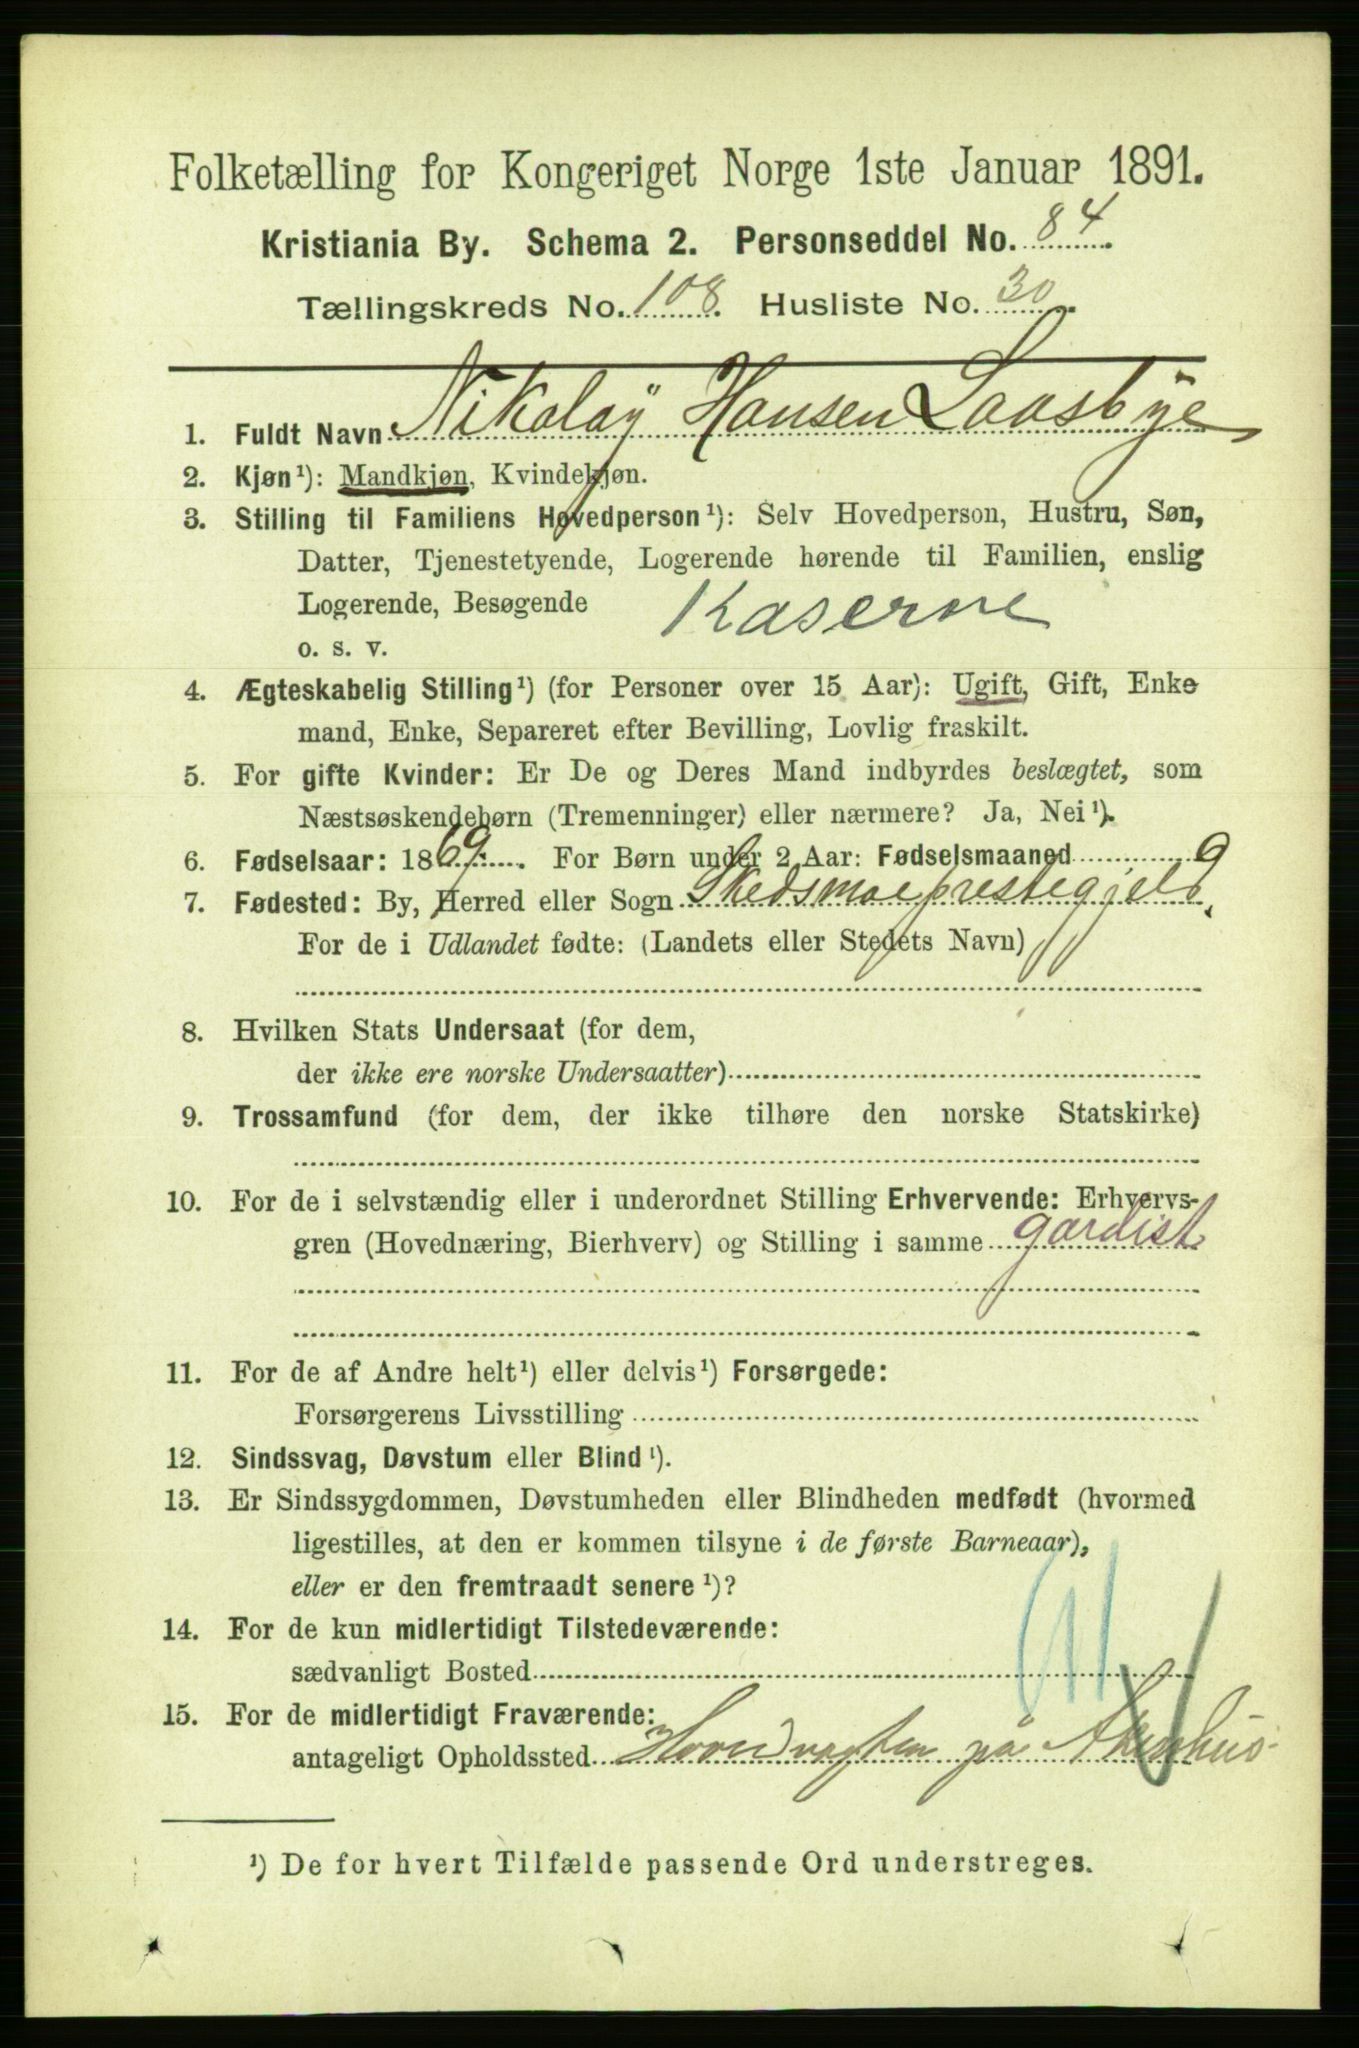 Folketælling for Kongeriget Norge 1ste Januar 1891.
Kristiania By. Schema 2. Personseddel No. 84.
Tællingskreds No. 108. Husliste No. 30.
1. Fuldt Navn Nikolaÿ Hansen Laasbye
2. Kjøn¹): Mandkjøn, Kvindekjøn.
3. Stilling til Familiens Hovedperson¹): Selv Hovedperson, Hustru, Søn,
Datter, Tjenestetyende, Logerende hørende til Familien, enslig
Logerende, Besøgende Kaserne
o. s. v.
4. Ægteskabelig Stilling¹) (for Personer over 15 Aar): Ugift, Gift, Enke
mand, Enke, Separeret efter Bevilling, Lovlig fraskilt.
5. For gifte Kvinder: Er De og Deres Mand indbyrdes beslægtet, som
Næstsøskendebørn (Tremenninger) eller nærmere? Ja, Nei¹).
6. Fødselsaar: 1869. For Børn under 2 Aar: Fødselsmaaned 9
7. Fødested: By, Herred eller Sogn Skedsmoe prestegjeld
For de i Udlandet fødte: (Landets eller Stedets Navn)
8. Hvilken Stats Undersaat (for dem,
der ikke ere norske Undersaatter)
9. Trossamfund (for dem, der ikke tilhøre den norske Statskirke)
10. For de i selvstændig eller i underordnet Stilling Erhvervende: Erhvervs-
gren (Hovednæring, Bierhverv) og Stilling i samme gardist
11. For de af Andre helt¹) eller delvis¹) Forsørgede:
Forsørgerens Livsstilling
12. Sindssvag, Døvstum eller Blind¹).
13. Er Sindssygdommen, Døvstumheden eller Blindheden medfødt (hvormed
ligestilles, at den er kommen tilsyne i de første Barneaar),
eller er den fremtraadt senere¹)?
14. For de kun midlertidigt Tilstedeværende:
sædvanligt Bosted
15. For de midlertidigt Fraværende:
antageligt Opholdssted Hovedvagten på Akershus
¹) De for hvert Tilfælde passende Ord understreges.